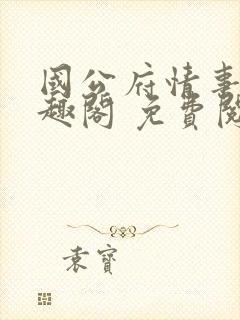 國公府情事
趣閣 免費閱
袁寶